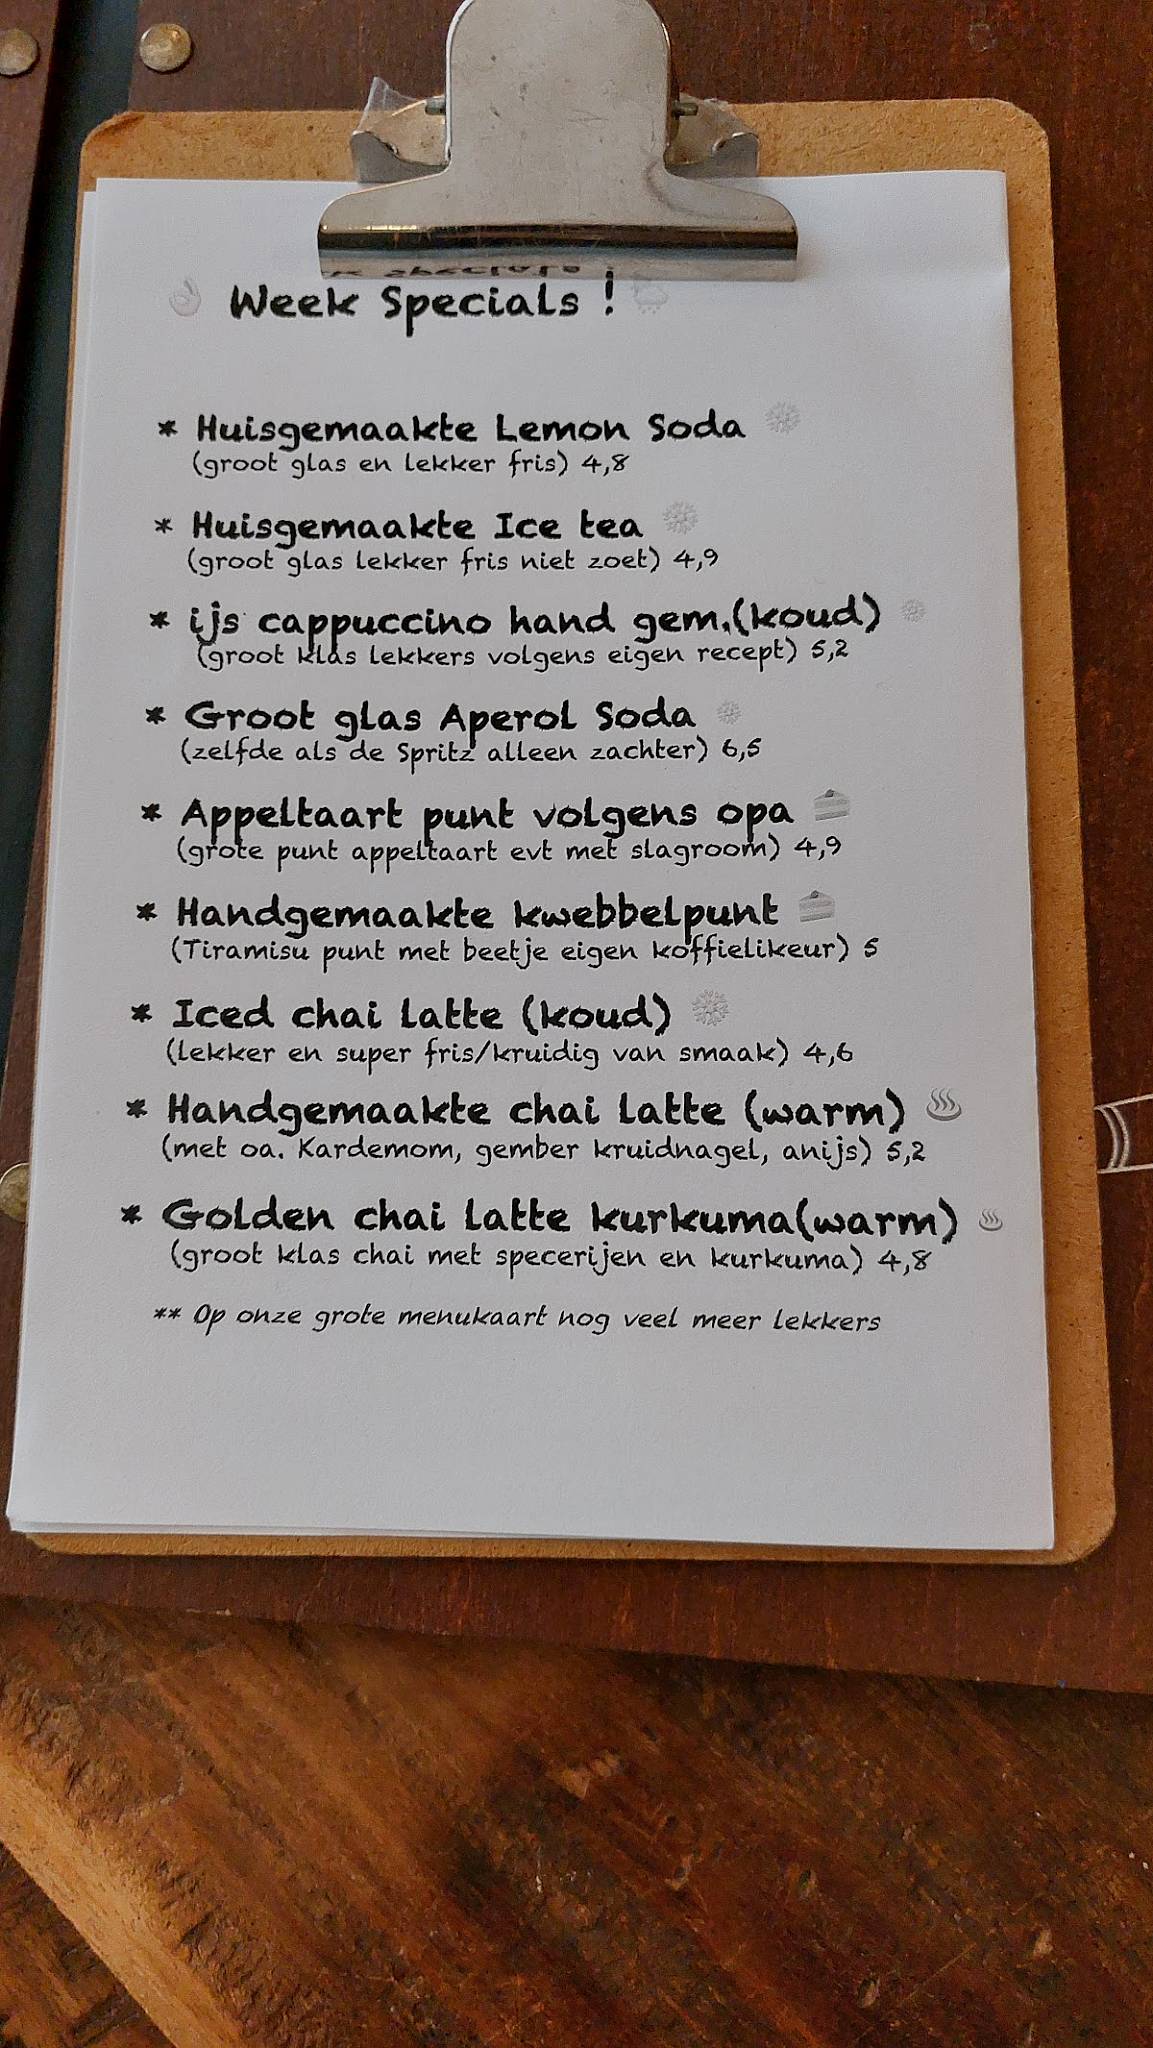 Week Specials !
* Huisgemaakte Lemon Soda
(groot glas en lekker fris) 4,8
* Huisgemaakte Ice tea
(groot glas lekker fris niet zoet) 4,9
* ijs cappuccino hand gem.(koud)
(groot klas lekkers volgens eigen recept) 5,2
* Groot glas Aperol Soda
(zelfde als de Spritz alleen zachter) 6,5
* Appeltaart punt volgens opa
(grote punt appeltaart evt met slagroom) 4,9
* Handgemaakte kwebbelpunt
(Tiramisu punt met beetje eigen koffielikeur) 5
* Iced chai latte (koud)
(lekker en super fris/kruidig van smaak) 4,6
* Handgemaakte chai latte (warm)
(met oa. Kardemom, gember kruidnagel, anijs) 5,2
* Golden chai latte kurkuma(warm)
(groot klas chai met specerijen en kurkuma) 4,8
** Op onze grote menukaart nog veel meer lekkers